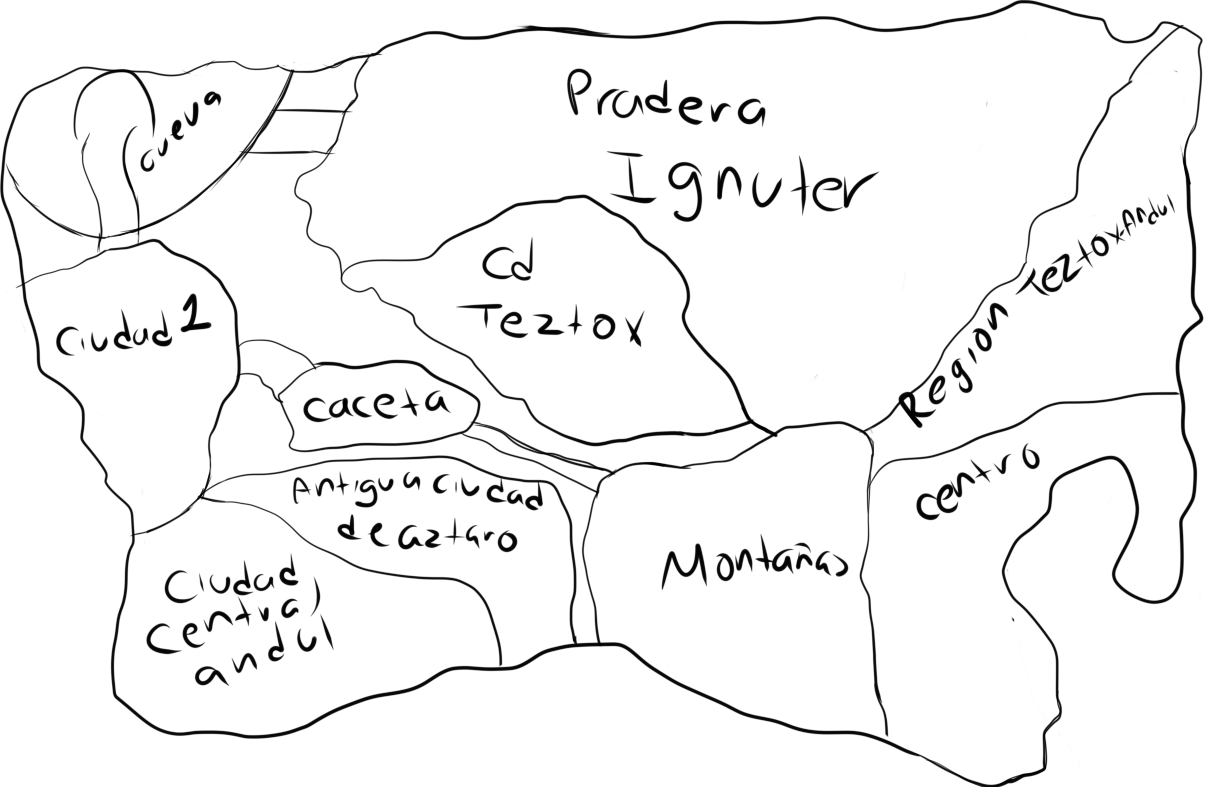 cueva
Pradera
Ignuter
Cd
Teztox
Region Teztox-Andul
Ciudad 1
caceta
centro
Antigua ciudad
de aztaro
Montañas
Ciudad
Central
andul